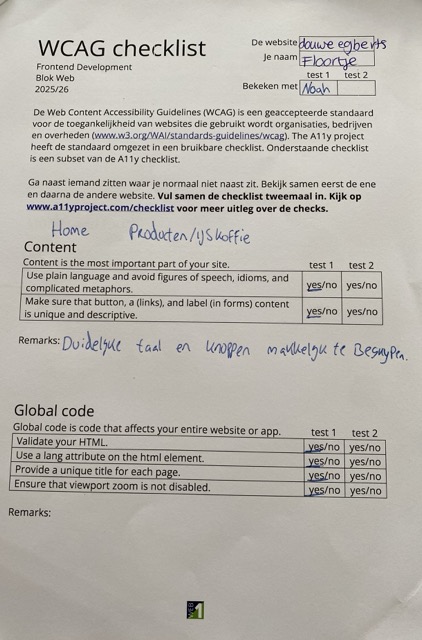 WCAG checklist
Frontend Development
Blok Web
2025/26
De website douwe egberts
Je naam Floortje
test 1 test 2
Bekeken met Noah
De Web Content Accessibility Guidelines (WCAG) is een geaccepteerde standaard
voor de toegankelijkheid van websites die gebruikt wordt organisaties, bedrijven
en overheden (www.w3.org/WAI/standards-guidelines/wcag). The A11y project
heeft de standaard omgezet in een bruikbare checklist. Onderstaande checklist
is een subset van de A11y checklist.
Ga naast iemand zitten waar je normaal niet naast zit. Bekijk samen eerst de ene
en daarna de andere website. Vul samen de checklist tweemaal in. Kijk op
www.a11yproject.com/checklist voor meer uitleg over de checks.
Home Producten/ijskoffie
Content
Content is the most important part of your site. test 1 test 2
Use plain language and avoid figures of speech, idioms, and
complicated metaphors. yes/no yes/no
Make sure that button, a (links), and label (in forms) content
is unique and descriptive. yes/no yes/no
Remarks: Duidelijke taal en knoppen makkelijk te Begrijpen.
Global code
Global code is code that affects your entire website or app. test 1 test 2
Validate your HTML. yes/no yes/no
Use a lang attribute on the html element. yes/no yes/no
Provide a unique title for each page. yes/no yes/no
Ensure that viewport zoom is not disabled. yes/no yes/no
Remarks:
WEB 1